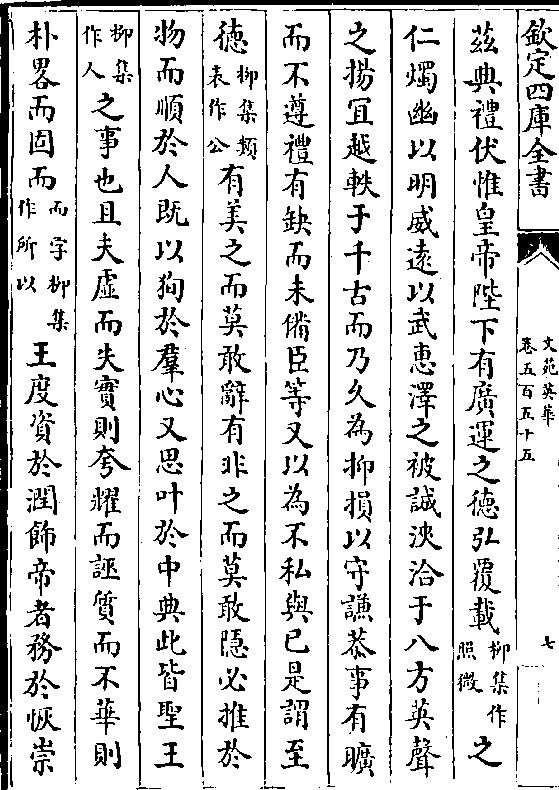 欽定四庫全書
文苑英華
卷五百五十五
七
茲典禮伏惟皇帝陛下有廣運之德弘覆載柳集作照微之
仁燭幽以明威遠以武惠澤之被誠浹洽于八方英聲
之揚宜越軼于千古而乃久為抑損以守謙恭事有曠
而不遵禮有缺而未備臣等又以為不私與已是謂至
德柳集類表作公有美之而莫敢辭有非之而莫敢隱必推於
物而順於人既以狥於羣心又思叶於中典此皆聖王
柳集作人之事也且夫虛而失實則夸耀而誣質而不華則
朴畧而固而而字柳集作所以王度資於潤飾帝者務於恢崇